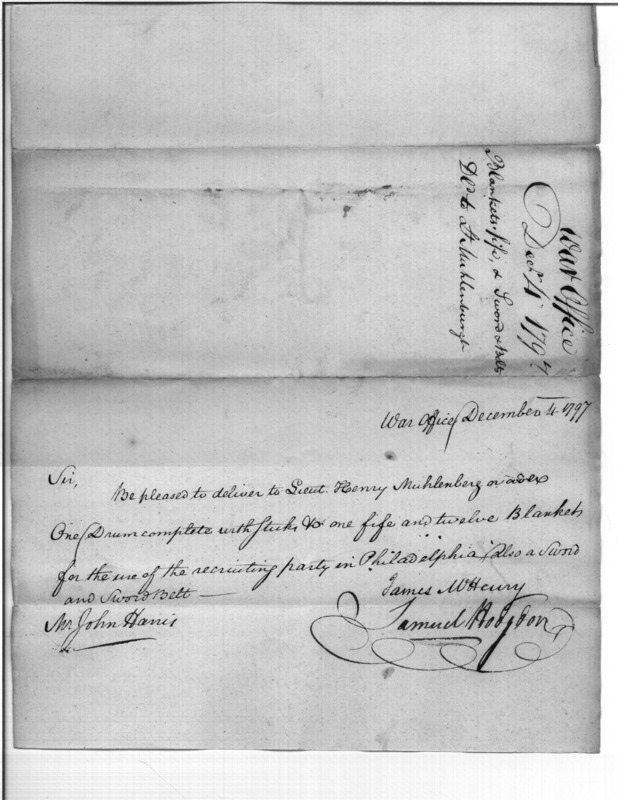 War Office
Decr. 4 1797
Blankets, fife, & Sword & Belts
Dld to Lt Muhlenburgh
War Office December 4. 1797
Sir,
Be pleased to deliver to Lieut. Henry Muhlenberg or order
One Drum complete with sticks &c one fife and twelve Blankets
for the use of the recruiting party in Philadelphia, also a Sword
and Sword Belt —
James McHenry
Mr John Harris
Samuel Hodgdon